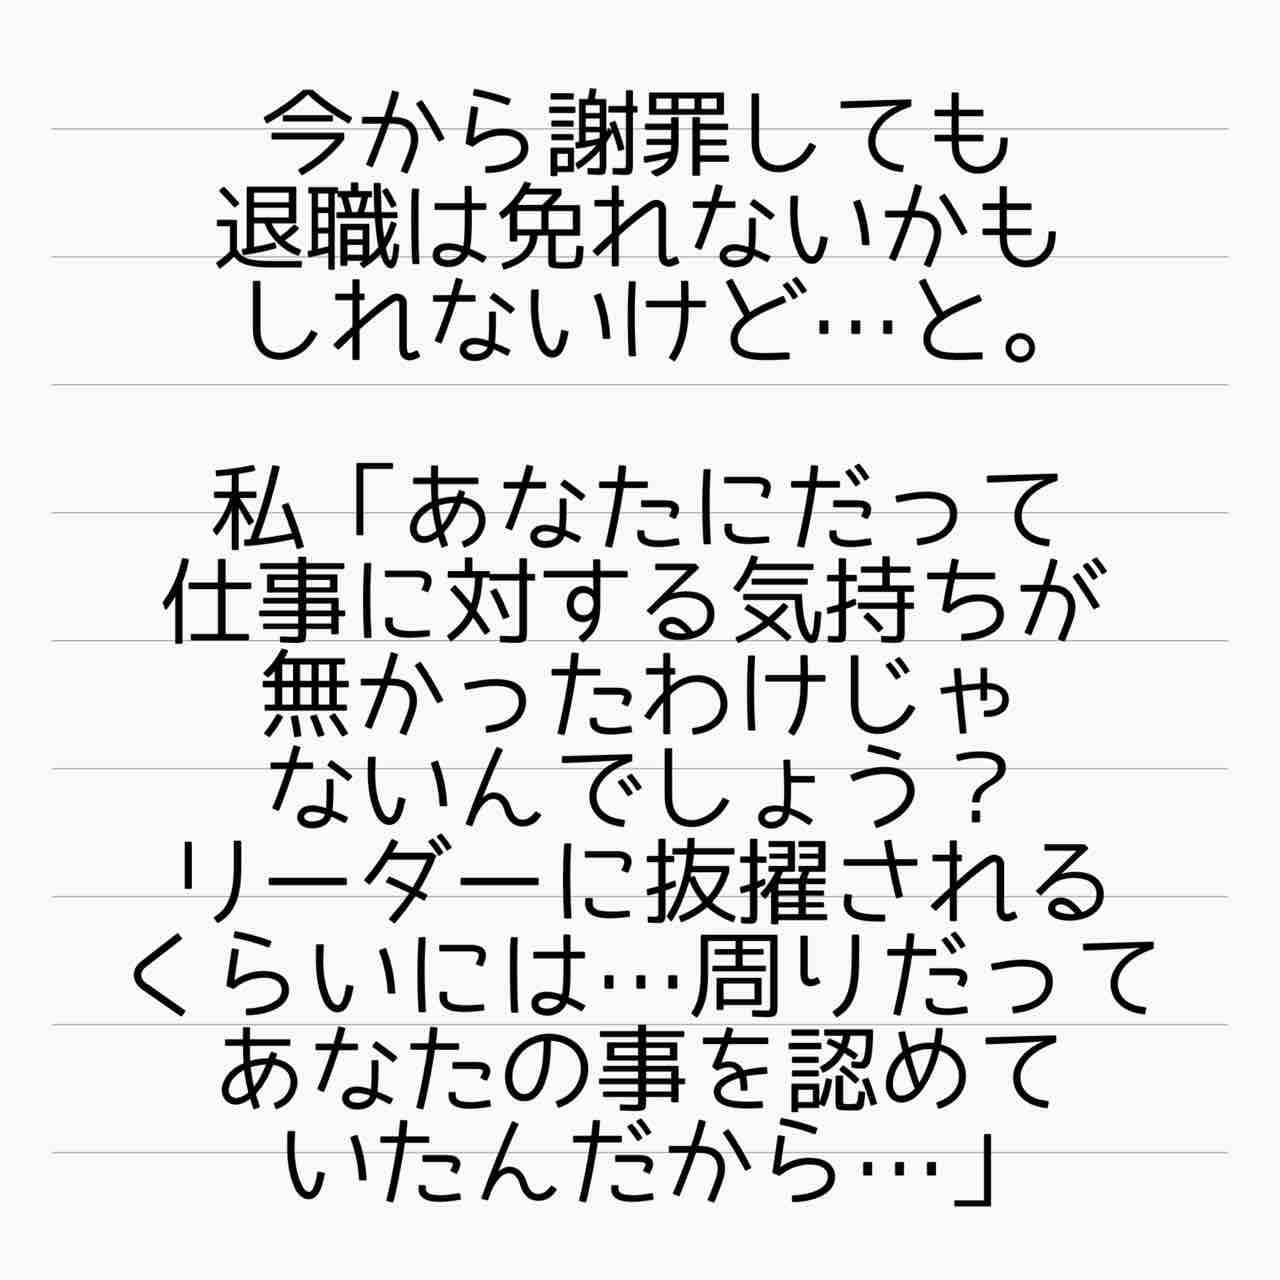 今から謝罪しても
退職は免れないかも
しれないけど…と。
私「あなたにだって
仕事に対する気持ちが
無かったわけじゃ
ないんでしょう？
リーダーに抜擢される
くらいには…周りだって
あなたの事を認めて
いたんだから…」